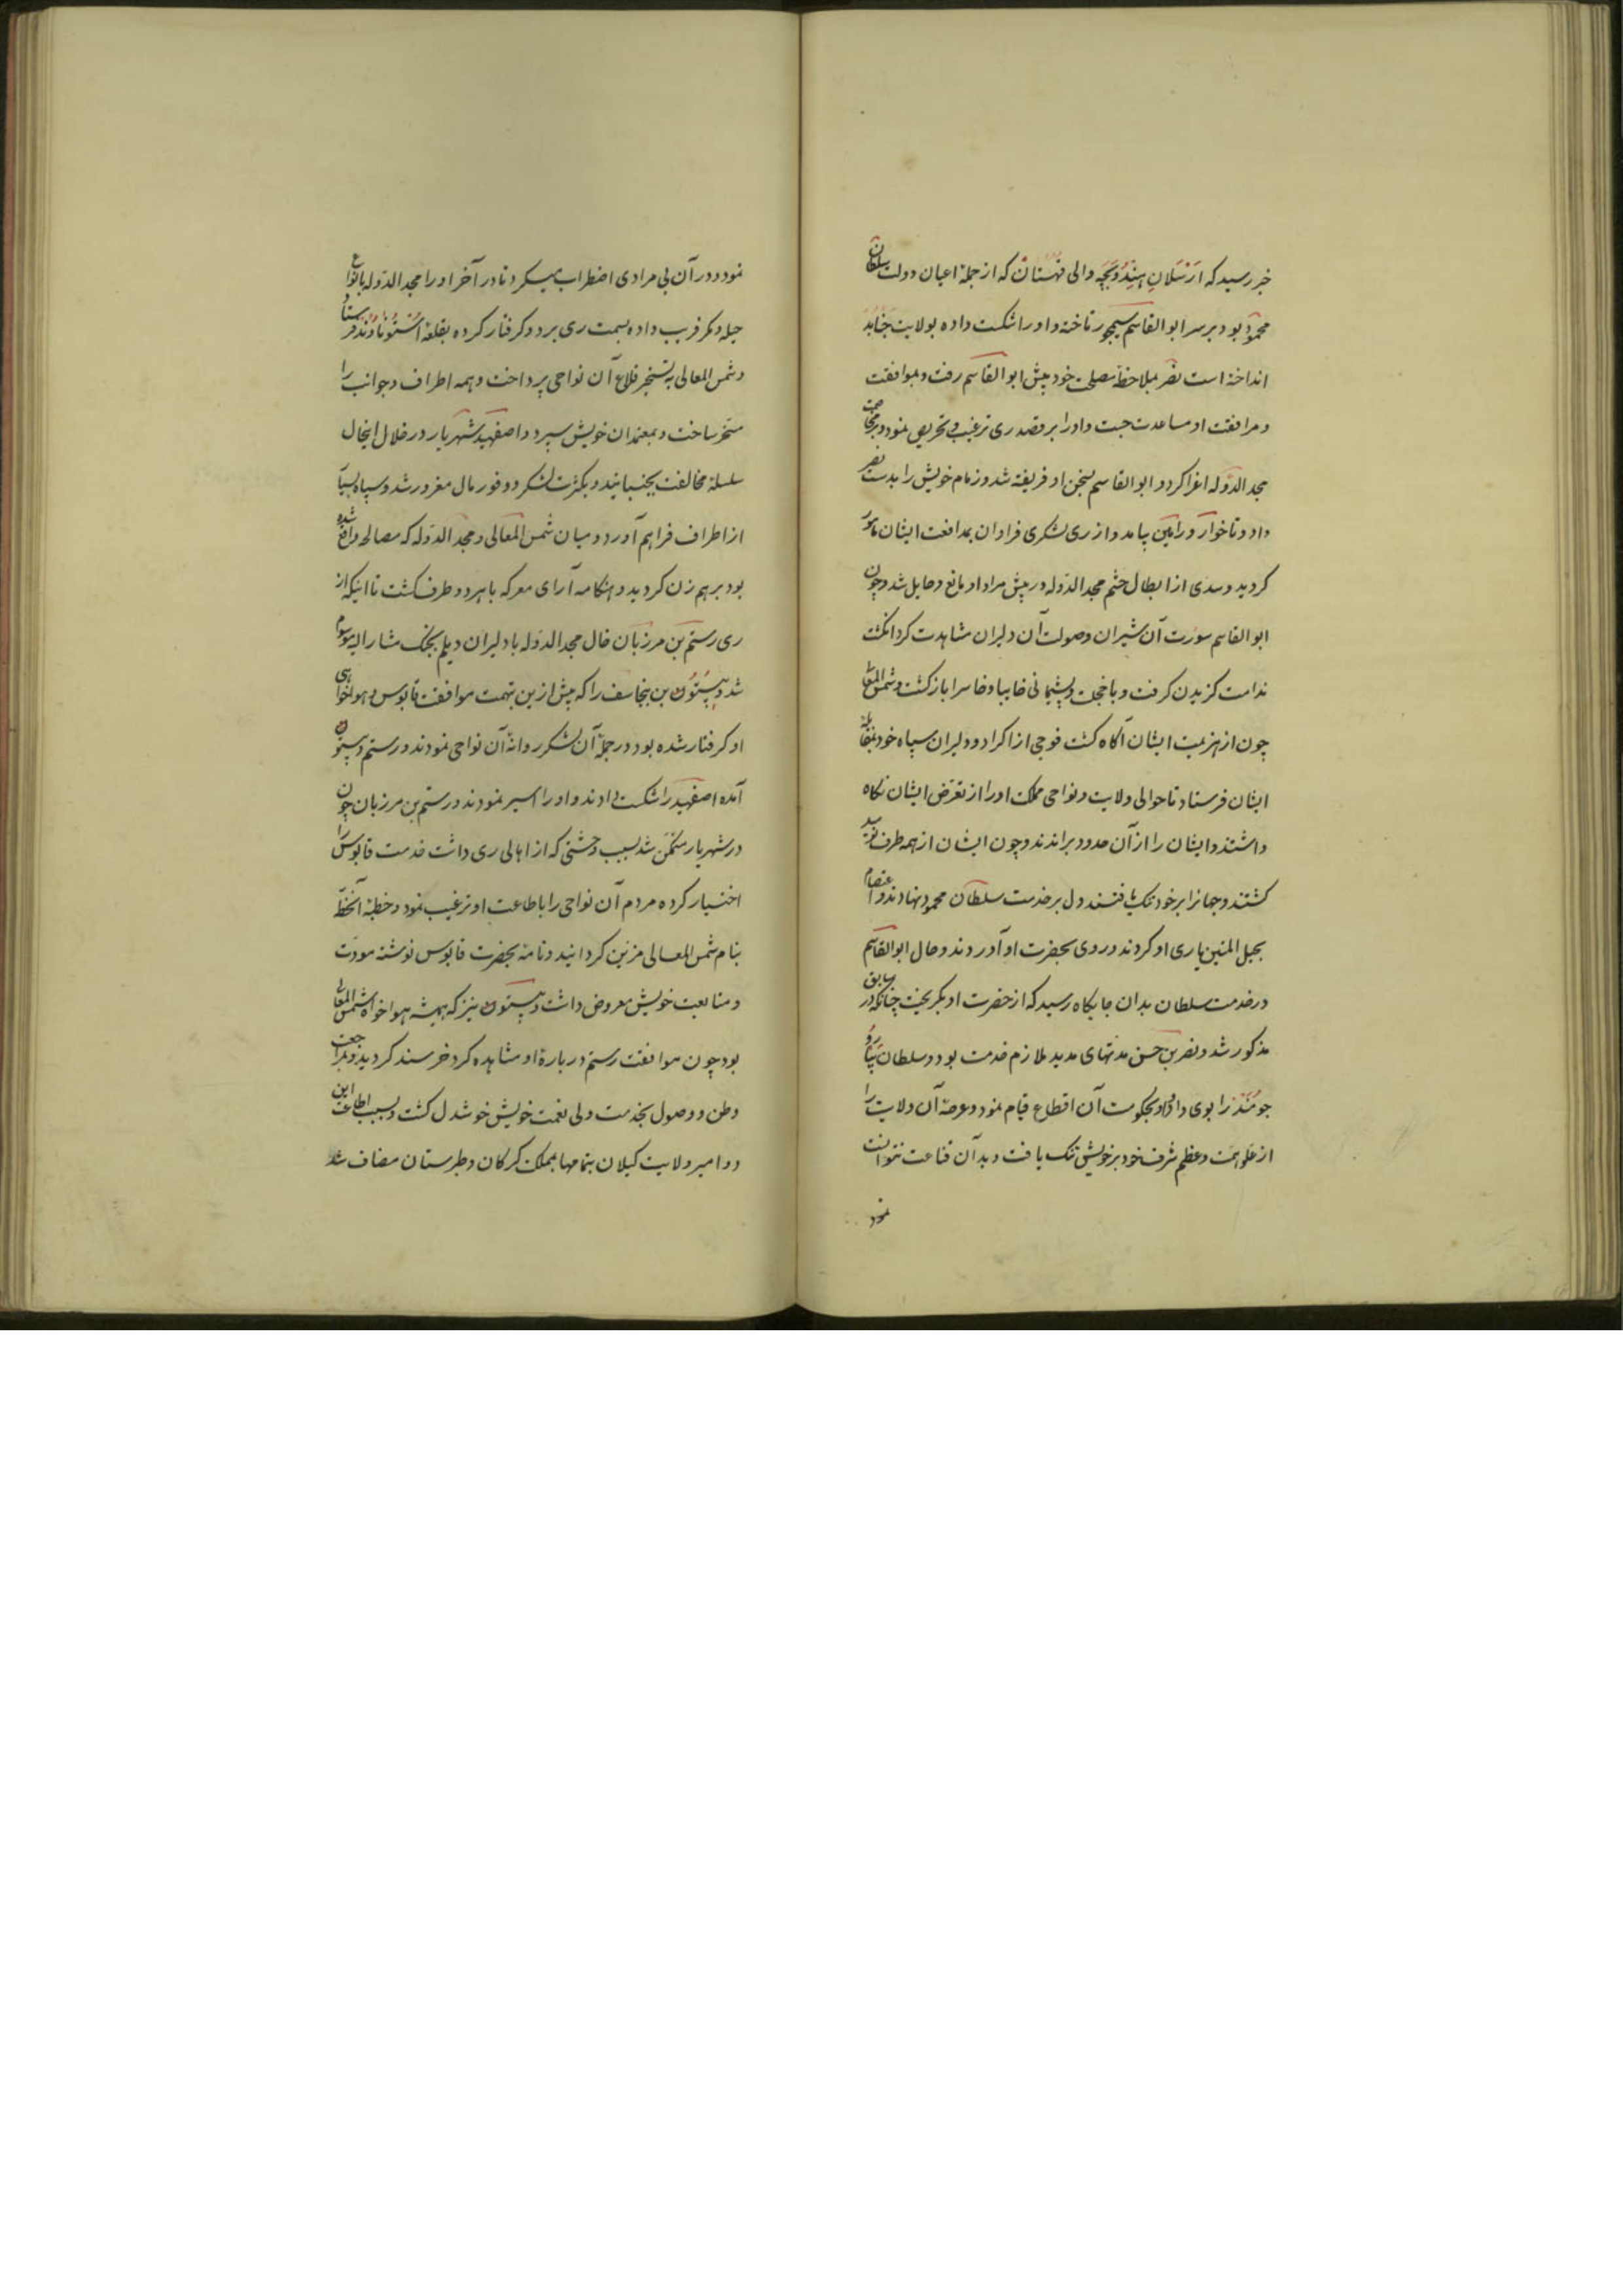 خبر رسید که ارسلان هندوبچه والی قهستان که از جمله اعیان دولت سلطان
محمود بود بر سر ابوالقاسم سیمجور تاخته و او را شکست داده بولایت جنابد
انداخته است نصر بملاحظه مصلحت خود پیش ابوالقاسم رفت و بموافقت
و مرافقت او مساعدت جست و او را بر قصد ری ترغیب و تحریص نمود و بر مخاصمت
مجد الدوله اغرا کرد و ابوالقاسم بسخن او فریفته شد و زمام خویش را بدست نصر
داد و تا خوار و رامین بیامد و از ری لشکری فراوان بمدافعت ایشان مامور
کردید و سدی از ابطال حشم مجد الدوله در پیش مراد او مانع و حایل شد و چون
ابوالقاسم سورت آن شیران و صولت آن دلیران مشاهدت کرد انکشت
ندامت کزیدن کرفت و با خجلت و پشیمانی خایبا و خاسرا بازکشت و شمس المعالی
چون از هزیمت ایشان آکاه کشت فوجی از اکراد و دلیران سپاه خود بمقابله
ایشان فرستاد تا حوالی ولایت و نواحی مملکت او را از تعرض ایشان نکاه
داشتند و ایشان را از آن حدود براندند و چون ایشان از همه طرف نومید
کشتند و جهانرا بر خود تنک یافتند دل بر خدمت سلطان محمود نهادند و اعتصام
بحبل المتین یاری او کردند و روی بحضرت او آوردند و حال ابوالقاسم
در خدمت سلطان بدان جایکاه رسید که از حضرت او بکریخت چنانکه در سابق
مذکور شد و نصر بن حسن مدتهای مدید ملازم خدمت بود و سلطان بیار و
جومند را بوی داد و او بحکومت آن اقطاع قیام نمود و عرصه آن ولایت را
از علو همت و عظم شرف خود بر خویش تنک یافت و بدان قناعت نتوانست
نمود
نمود و در آن بی مرادی اضطراب میکرد تا در آخر او را مجد الدوله بانواع
حیله و مکر فریب داده بسمت ری برد و کرفتار کرده بقلعه استوناوند فرستاد
و شمس المعالی به تسخیر قلاع آن نواحی پرداخت و همه اطراف و جوانب را
مسخر ساخت و بمعتمدان خویش سپرد و اصفهبد شهریار در خلال اینحال
سلسله مخالفت بجنبانید و بکثرت لشکر و وفور مال مغرور شد و سپاه بسیار
از اطراف فراهم آورد و میان شمس المعالی و مجد الدوله که مصالحه واقع شده
بود بر هم زن کردید و هنکامه آرای معرکه با هر دو طرف کشت تا اینکه از
ری رستم بن مرزبان خال مجد الدوله با دلیران دیلم بجنک مشار الیه موسوم
شد و بیستون بن بیجاسف را که پیش ازین بتهمت موافقت قابوس و هواخواهی
او کرفتار شده بود در جمله آن لشکر روانه آن نواحی نمودند و رستم و بیستون
آمده اصفهبد را شکست دادند و او را اسیر نمودند و رستم بن مرزبان چون
در شهریار متمکن شد بسبب وحشتی که از اهالی ری داشت خدمت قابوس را
اختیار کرده مردم آن نواحی را باطاعت او ترغیب نمود و خطبه آنخطه
بنام شمس المعالی مزین کردانید و نامه بحضرت قابوس نوشته مودت
و متابعت خویش معروض داشت و بیستون نیز که همیشه هواخواه شمس المعالی
بود چون موافقت رستم درباره او مشاهده کرد خرسند کردید و بمراجعت
وطن و وصول بخدمت ولی نعمت خویش خوشدل کشت و بسبب اطاعت این
دو امیر ولایت کیلان بتمامها بمملکت کرکان و طبرستان مضاف شد